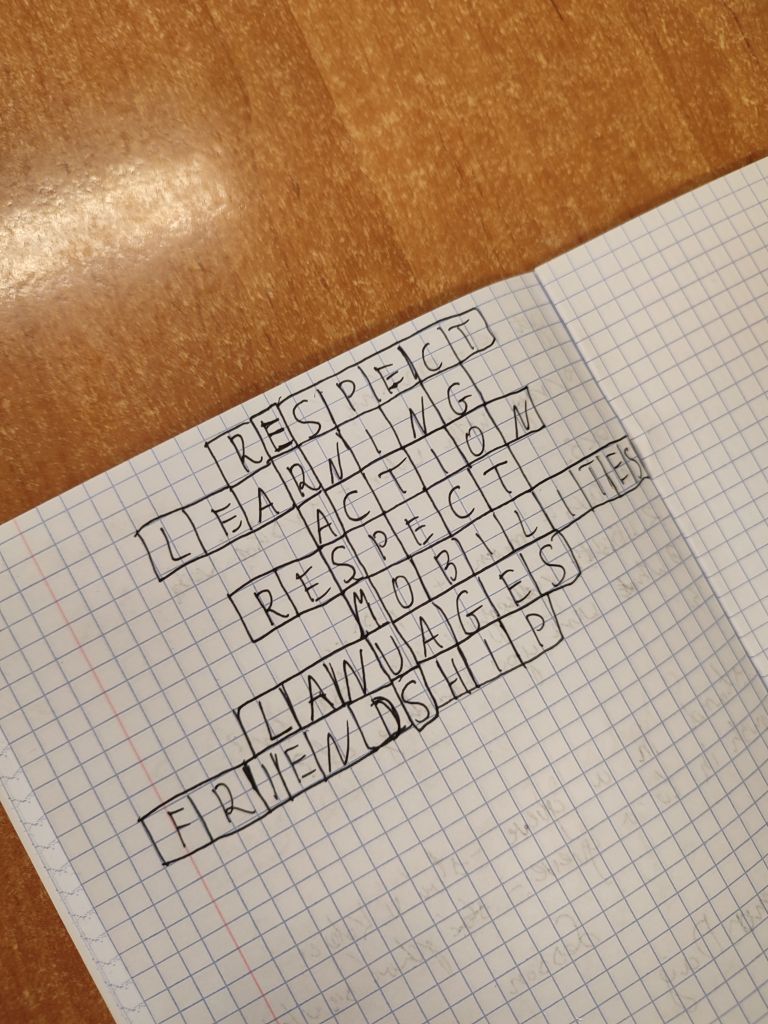 RESPECT
LEARNING
ACTION
RESPECT
MOBILITIES
LANUAGES
FRIENDSHIP